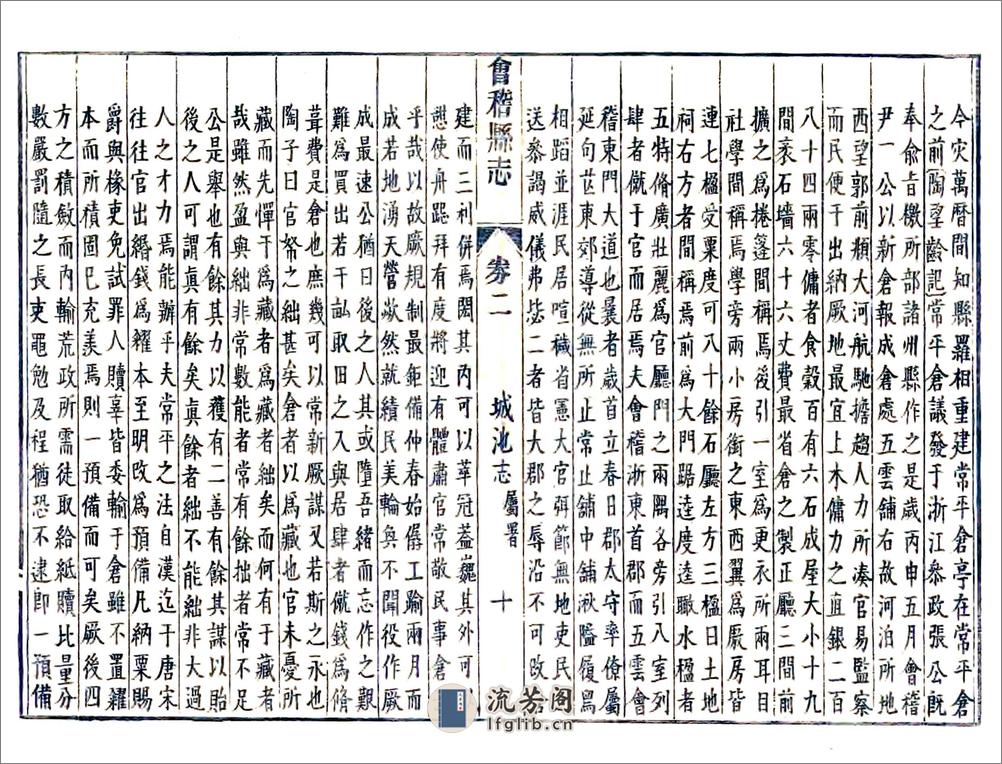 今灾萬曆間知縣羅相重建常平倉亭在常平倉
之前陶望齡記常平倉議發于浙江叅政張公旣
奉俞旨檄所部諸州縣作之是歲丙申五月會稽
尹一公以新倉報成倉處五雲舖右故河泊所地
西望郭前頫大河航馳擔趨人力所湊官易監察
而民便于出納厥地最宜上木傭力之直銀二百
八十四兩零傭者食穀百有六石成屋大小十九
間袤石墻六十六丈費最省倉之製正廳三間前
擴之爲捲蓬間稱焉後引一室爲更衣所兩耳目
社學間稱焉學旁兩小房衝之東西翼爲厫房皆
連七楹受粟度可八十餘石廳左方三楹曰土地
祠右方者間稱焉前爲大門踞逵度逵瞰水楹者
五特脩廣壯麗爲官廳門之兩隅各旁引八室列
肆者僦于官而居焉夫會稽浙東首郡而五雲會
稽東門大道也曩者歲立春日郡太守率僚屬
延句芒東郊導從無所止常止舖中舖湫隘履舃
相蹈並涯民居喧穢省憲大官弭節無地吏民
送叅謁威儀弗毖二者皆大郡之辱沿不可改
會稽縣志
卷二
城池志
屬署
十
建而三利併焉閎其内可以萃冠葢巍其外可
憩使舟跽拜有度將迎有體肅官常敬民事倉
乎哉以故厥規制最鉅仲春始僝工踰兩月而
成若地湧天營欻然就績民美輪奐不聞役作厥
成最速公猶曰後之人其或隳吾緒而忘作之艱
難爲買出若干畆取田之入與居肆者僦錢爲脩
葺費是倉也庶幾可以常新厥謀又若斯之永也
陶子曰官帑之絀甚矣倉者以爲藏也官未憂所
藏而先憚于藏者爲藏者絀矣而何有于藏者
哉雖然盈與絀非常數能者常有餘拙者常不足
公是舉也有餘其力以獲有二善有餘其謀以貽
後之人可謂有餘矣眞有餘矣眞餘者絀不能絀非大過
人之才力焉能辦乎夫常平之法自漢迄于唐宋
往往官出緡錢爲糴本至明改爲預備凡納粟賜
爵與椽吏免試罪人贖辜皆委輸于倉雖不置糴
本而所積固已充羨焉則一預備而可矣厥後四
方之積斂而内輸荒政所需徒取給紙贖比量分
數嚴罰隨之長吏黽勉及程猶恐不逮卽一預備
流芳阁
lfglib.cn